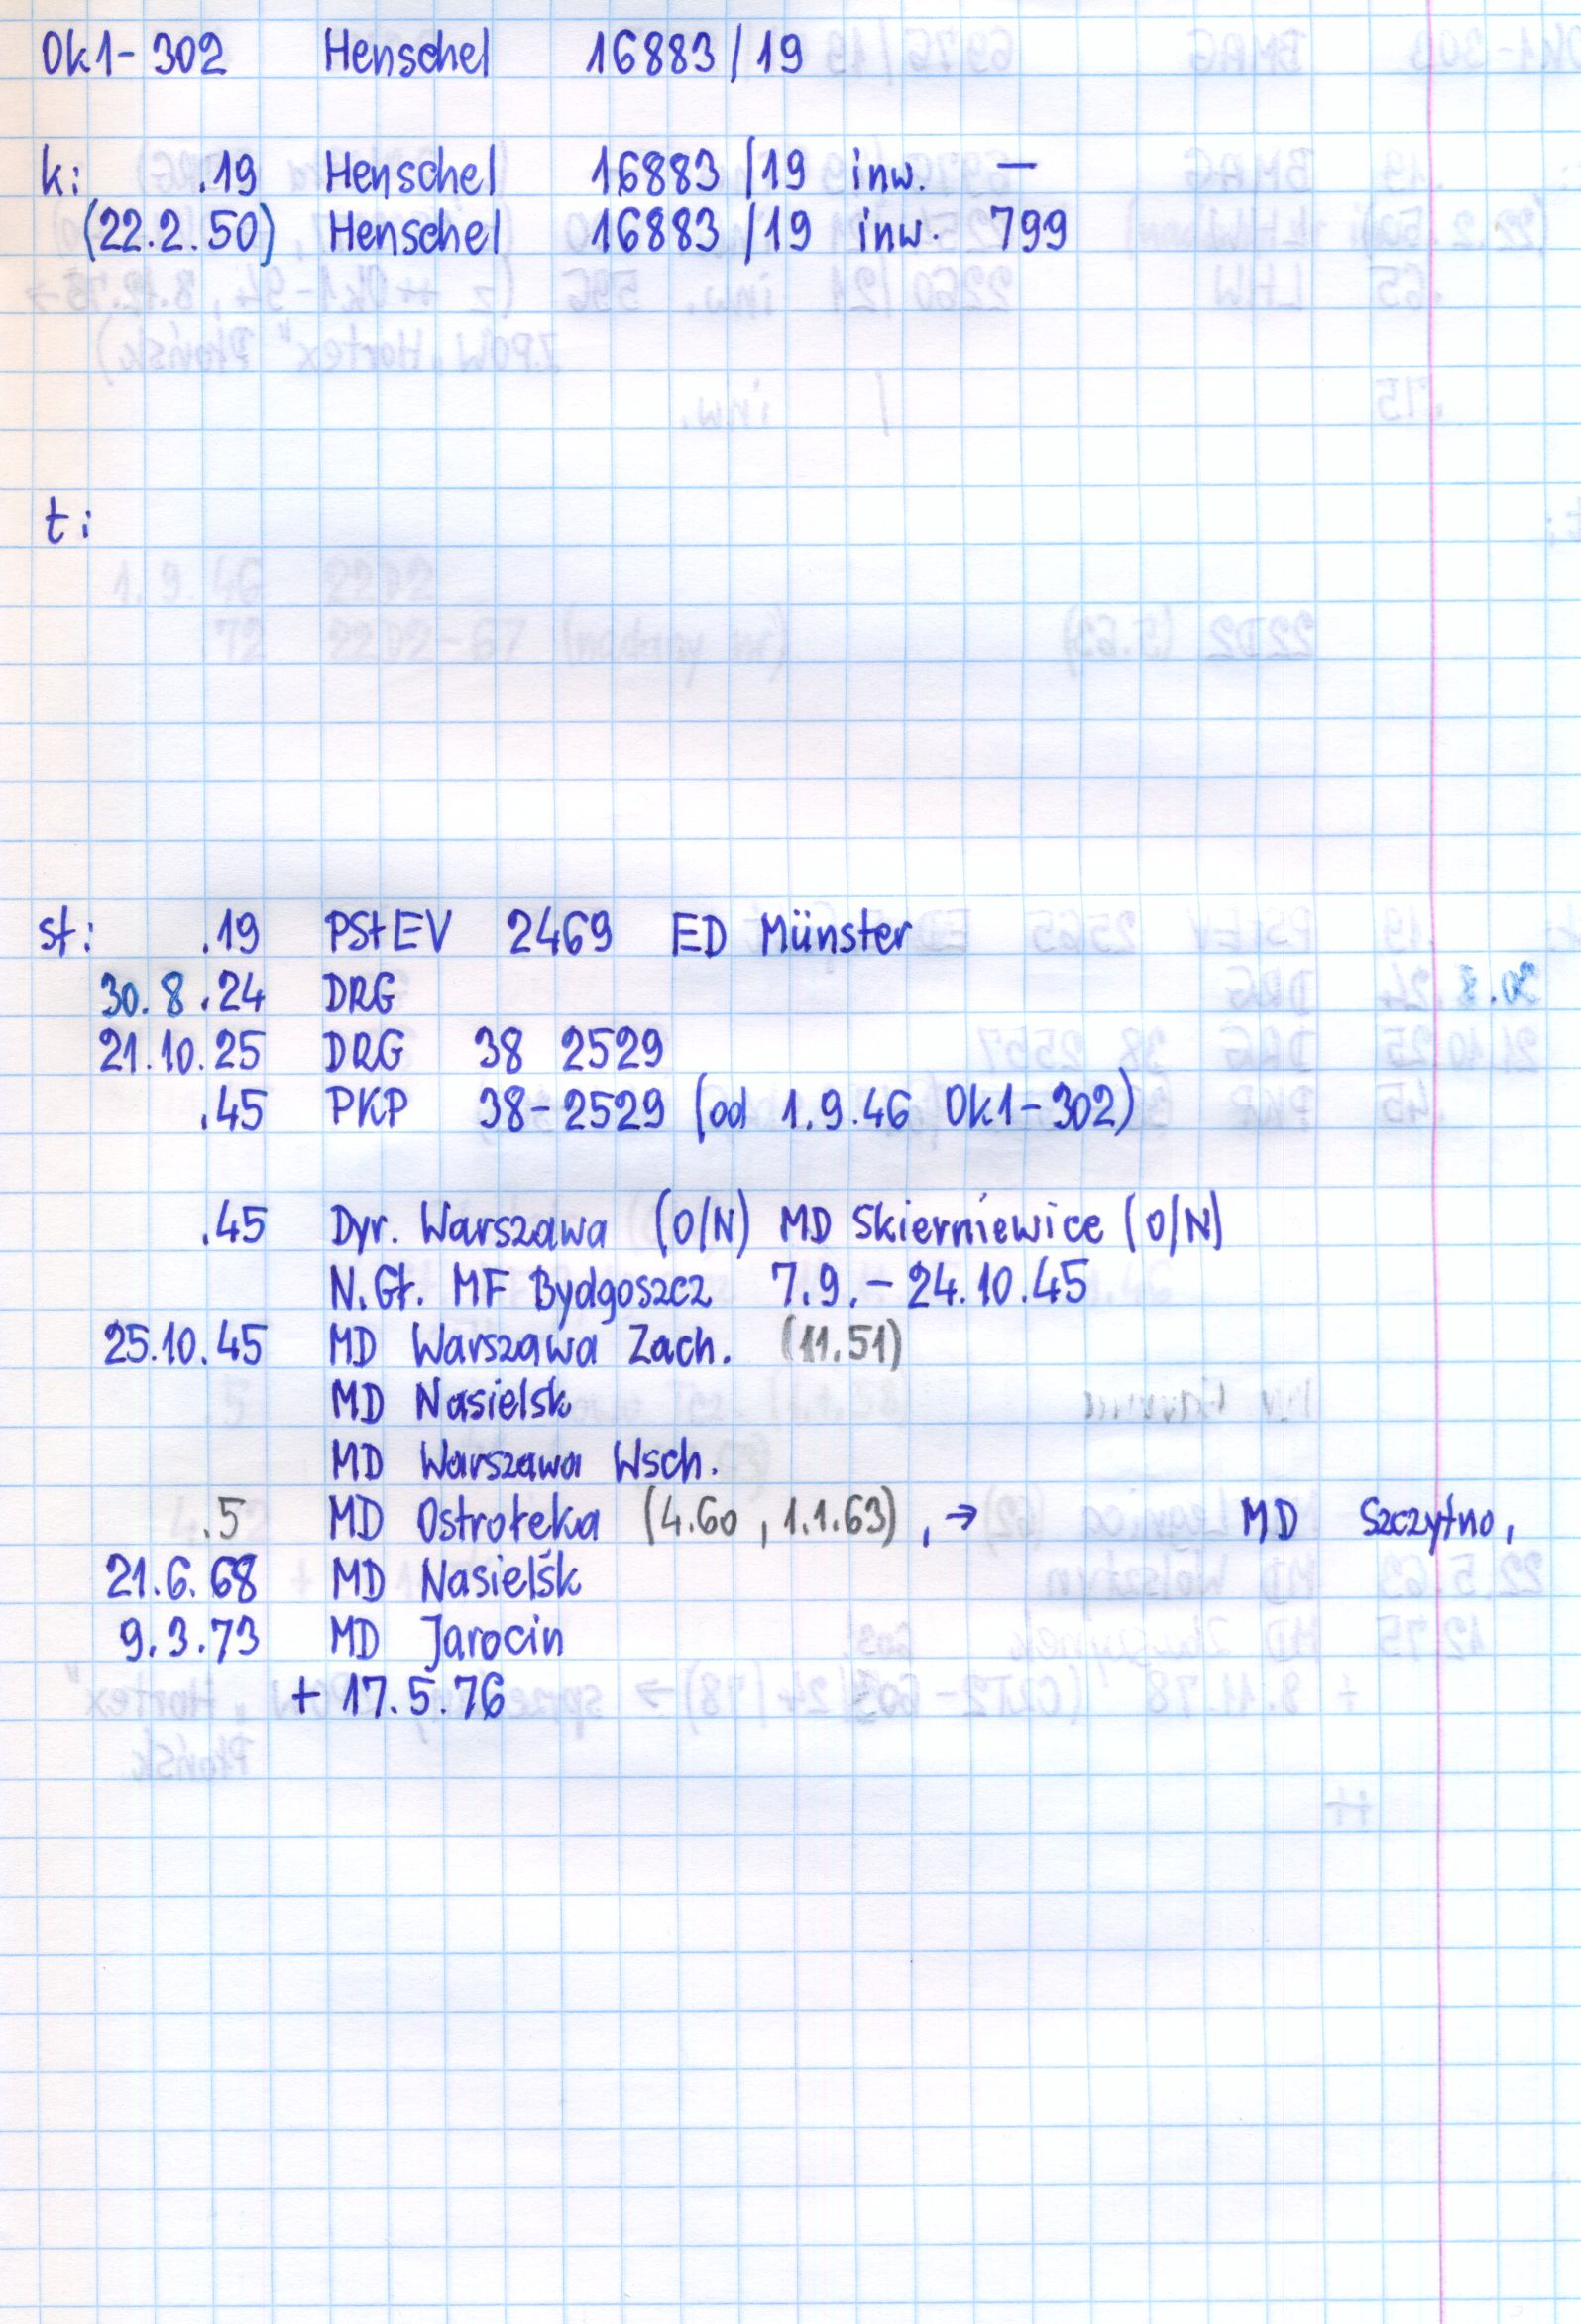 Ok1-302 Henschel 16883/19
k: .19 Henschel 16883/19 inw. —
(22.2.50) Henschel 16883/19 inw. 799
t:
1.9.46 22D2
72 22D2-67 (nadany nr)
st: .19 PStEV 2469 ED Münster
30.8.24 DRG
21.10.25 DRG 38 2529
.45 PKP 38-2529 (od 1.9.46 Ok1-302)
.45 Dyr. Warszawa (O/N) MD Skierniewice (O/N)
N.Gł. MF Bydgoszcz 7.9.-24.10.45
25.10.45 MD Warszawa Zach. (11.51)
MD Nasielsk
MD Warszawa Wsch.
.5 MD Ostrołeka (4.60, 1.1.63), → MD Szczytno,
21.6.68 MD Nasielsk
9.3.73 MD Jarocin
+ 17.5.76